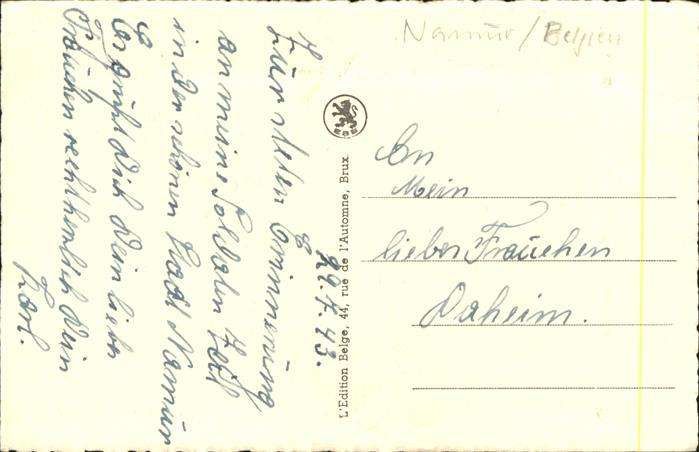 Namur / Belgien
Zur steten Erinnerung
an meine Soldaten Zeit
in der schönen Stadt Namur
Es grüßt Dich Dein lieber
Frauchen recht herzlich Dein
Karl.
29.7.43.
L'Edition Belge, 44, rue de l'Automne, Brux
An
Mein
liebes Frauchen
Daheim.